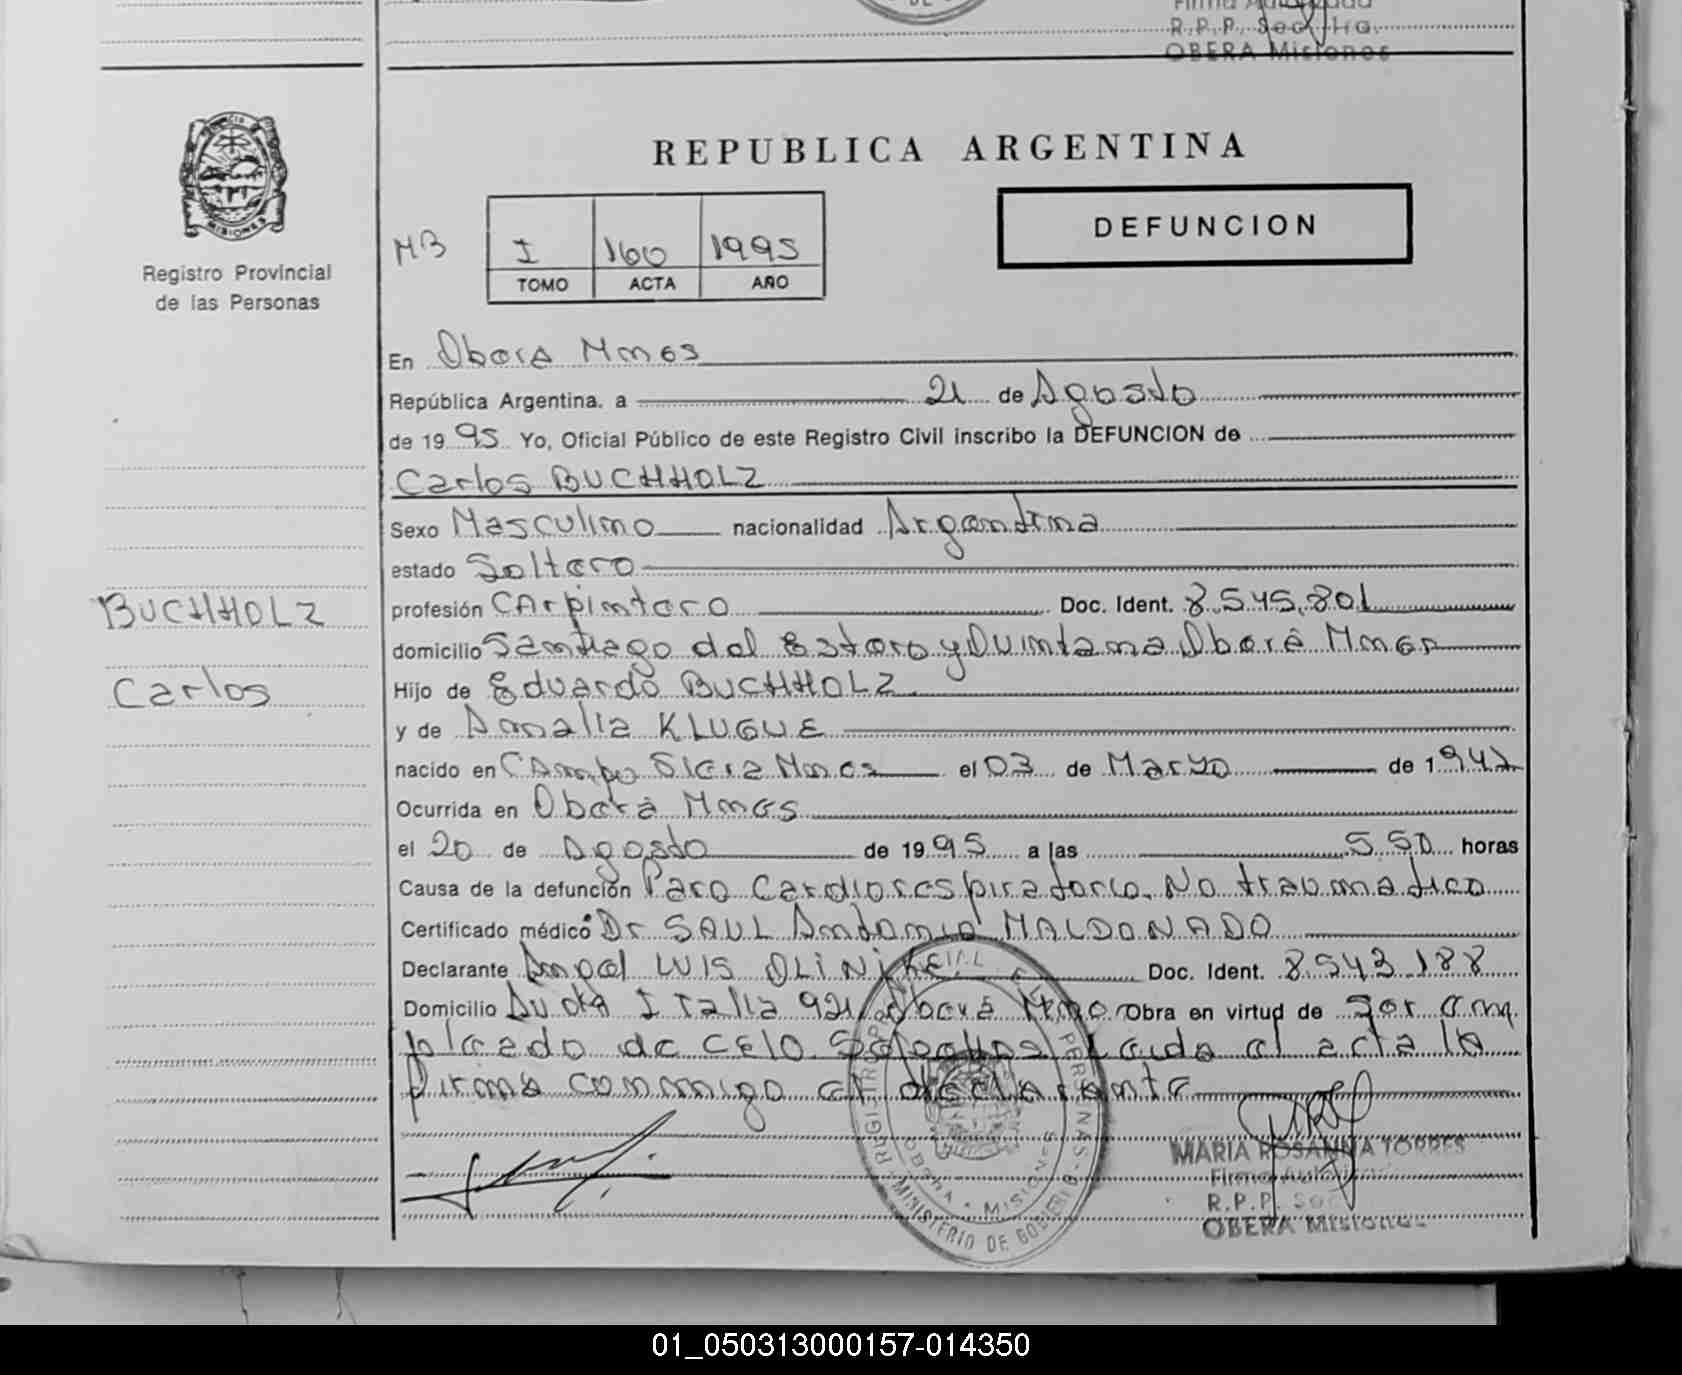 Firma Autorizada
R.P.P. Secc. Ira.
OBERA Misiones
REPUBLICA ARGENTINA
MB
I 160 1995
TOMO ACTA AÑO
DEFUNCION
MISIONES
Registro Provincial
de las Personas
En Oberá Mnes
República Argentina. a 21 de Agosto
de 1995 Yo, Oficial Público de este Registro Civil inscribo la DEFUNCION de
Carlos BUCHHOLZ
Sexo Masculino nacionalidad Argentina
estado Soltero
profesión CArpintero Doc. Ident. 8.545.801
domicilio Santiago del Estero y Quintana Oberá Mnes
Hijo de Eduardo BUCHHOLZ
y de Amalia KLUGUE
nacido en CAmpo Viera Mnes el 03 de Marzo de 1947
Ocurrida en Oberá Mnes
el 20 de Agosto de 1995 a las 5.50 horas
Causa de la defunción Paro Cardiorespiratorio. No traumatico
Certificado médico Dr SAUL Antonio MALDONADO
Declarante Angel LUIS OLINIKE Doc. Ident. 8.543.188
Domicilio Avda ITalia 921 Oberá Mnes Obra en virtud de Ser em
pleado de CELO Sepelios Leida el acta la
firma conmigo el declarante
BUCHHOLZ
Carlos
REGISTRO PROVINCIAL DE LAS PERSONAS
OBERA - MISIONES
MINISTERIO DE GOBIERNO
MARIA ROSANNA TORRES
Firma Autorizada
R.P.P. Sec
OBERA Misiones
01_050313000157-014350